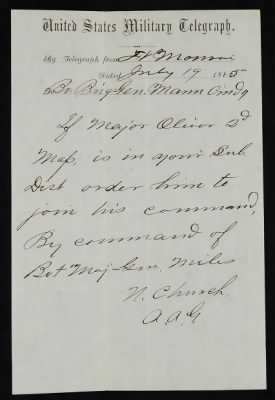 United States Military Telegraph.
By Telegraph from Ft Monroe
Dated July 19 1865
Bv Brig Gen. Mann Cmdg
If Major Oliver 2d
Mass. is in your Sub.
Dist order him to
join his command,
By command of
Bvt Maj Gen. Miles
N. Church,
A. A. G